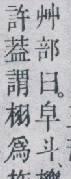 艸部曰。皁斗、
許葢謂栩爲